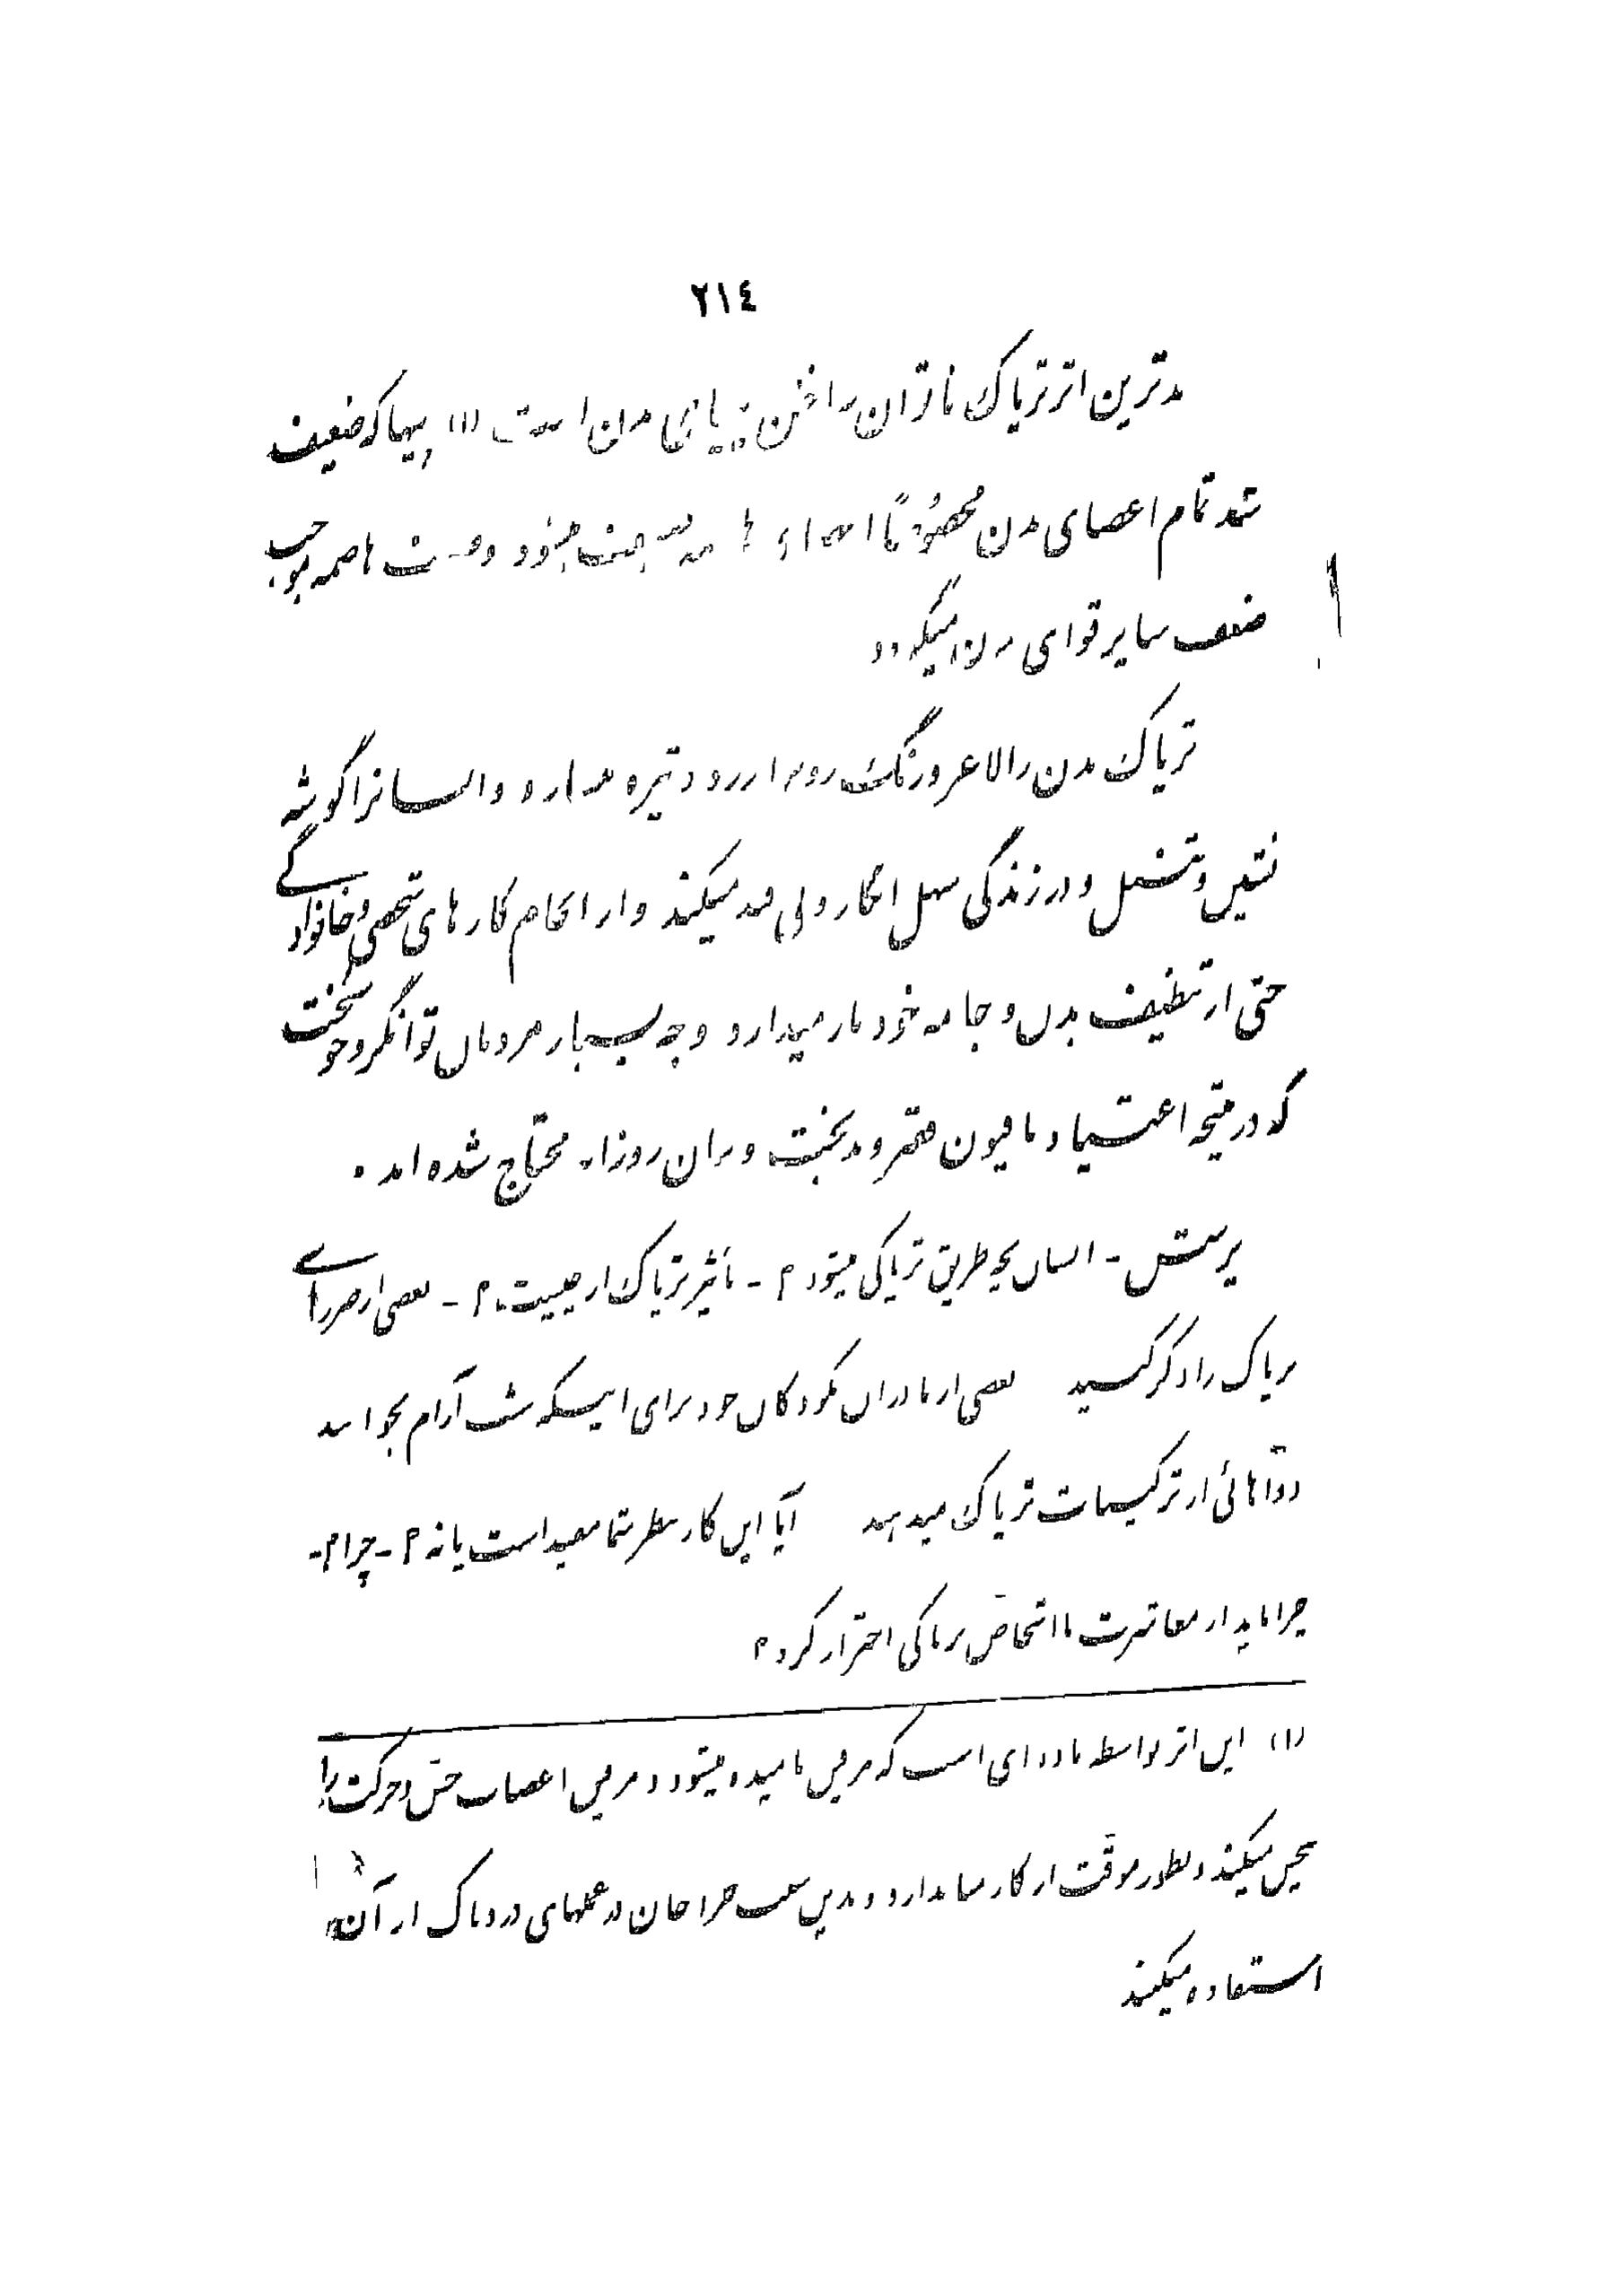 ٢١٤
بدترین اثر تریاک تأثر آن در اعصاب بدن است (۱) پیها که ضعیف
شد تمام اعضای بدن مخصوصاً ضعیف میشود و ضعف هاضمه موجب
ضعف سایر قوای بدن میگردد
تریاک بدن را لاغر و رنگ رو را زرد و تیره میسازد و انسانرا گوشه
نشین و تنبل و در زندگی سهل انگار و لاقید میکند و از انجام کارهای شخصی و خانوادگی
حتی از تنظیف بدن و جامه خود باز میدارد و چه بسیار مردمان توانگر و خوشبخت
که در نتیجه اعتیاد بافیون فقیر و بدبخت و بنان روزانه محتاج شده اند .
پرسش - انسان بچه طریق تریاکی میشود ؟ - تأثیر تریاک از چیست ؟ - بعضی از ضررهای
تریاک را ذکر کنید بعضی از مادران بکودکان خود برای اینکه شب آرام بخوابند
دواهائی از ترکیبات تریاک میدهند آیا این کار بنظر شما مفید است یا نه ؟ - چرا ؟ -
چرا باید از معاشرت با اشخاص تریاکی احتراز کرد ؟
(۱) این اثر بواسطه ماده ای است که مرفین نامیده میشود و مرفین اعصاب حس و حرکت را
بیحس میکند و بطور موقت از کار میاندازد و بدین سبب جراحان در عملهای دردناک از آن
استفاده میکنند